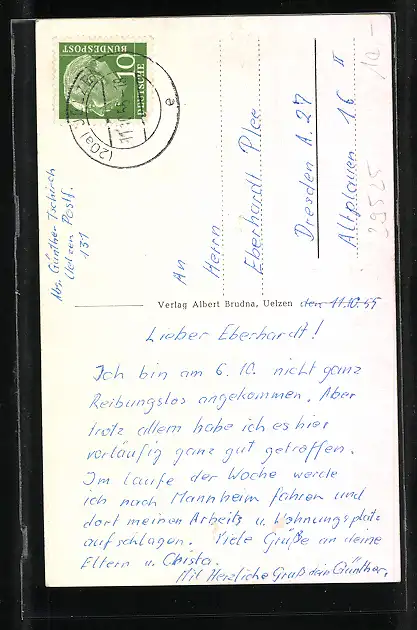 10
DEUTSCHE
BUNDESPOST
(20a)
Abs. Günther Tschirch
Uelzen Postf.
131
An
Herrn
Eberhardt Plee
Dresden A. 27
Altplauen 16 II
29525
Verlag Albert Brudna, Uelzen den 11.10.55
Lieber Eberhardt!
Ich bin am 6.10. nicht ganz
Reibungslos angekommen. Aber
trotz allem habe ich es hier
vorläufig ganz gut getroffen.
Im laufe der Woche werde
ich nach Mannheim fahren und
dort meinen Arbeits u. Wohnungsplatz
aufschlagen. Viele Grüße an deine
Eltern u. Christa.
Mit Herzliche Gruß dein Günther.